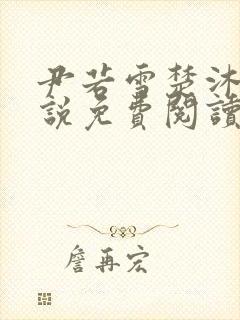 尹若雪楚沐
說免費閱讀
詹再宏